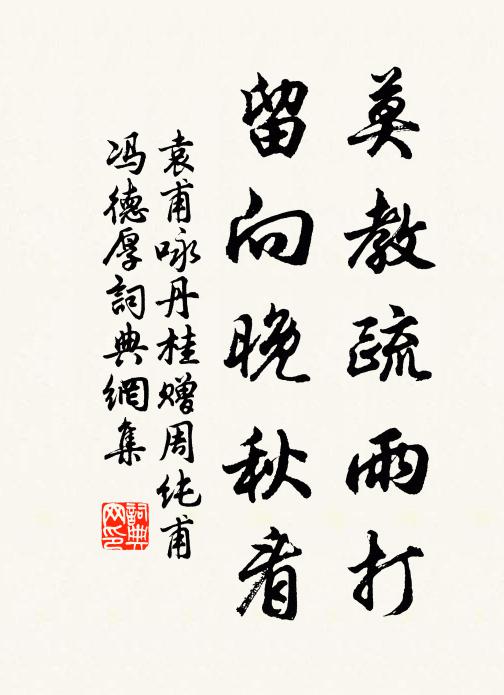 莫教疏雨打
留向晚秋看
袁甫咏丹桂赠周纯甫
冯德厚詞典網集
詞典網印